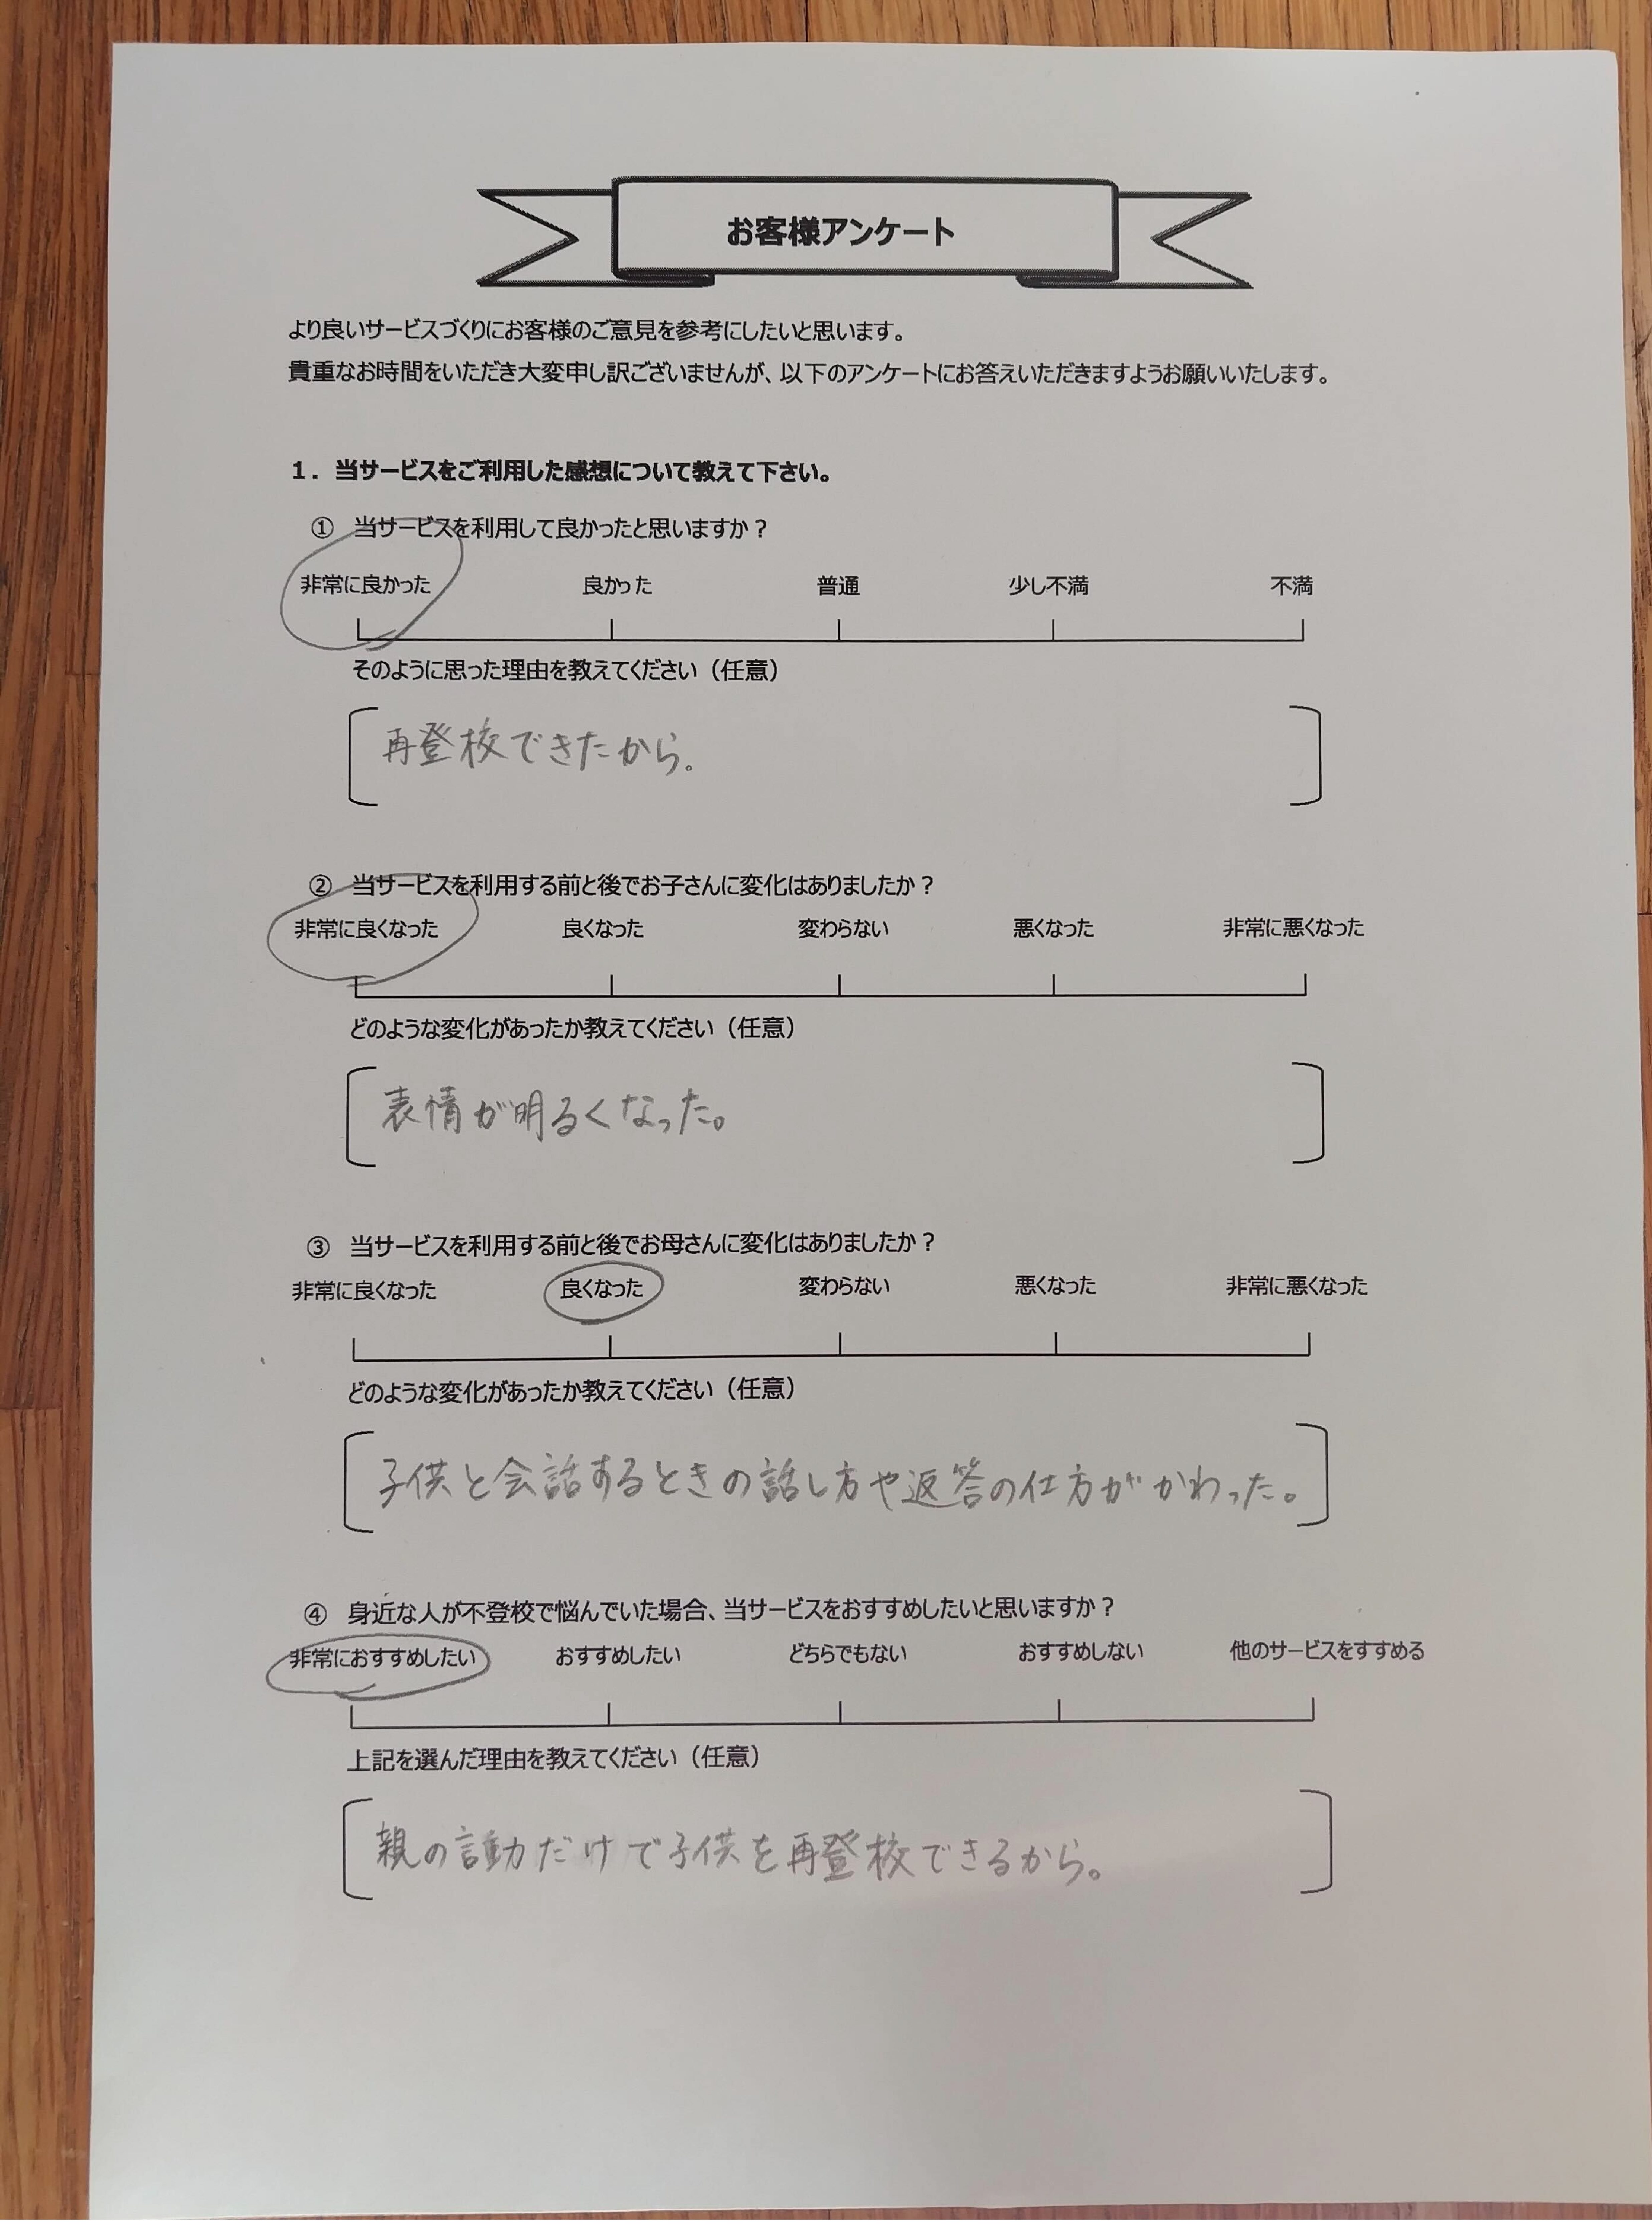 お客様アンケート
より良いサービスづくりにお客様のご意見を参考にしたいと思います。
貴重なお時間をいただき大変申し訳ございませんが、以下のアンケートにお答えいただきますようお願いいたします。
１．当サービスをご利用した感想について教えて下さい。
① 当サービスを利用して良かったと思いますか？
非常に良かった 良かった 普通 少し不満 不満
そのように思った理由を教えてください（任意）
再登校できたから。
② 当サービスを利用する前と後でお子さんに変化はありましたか？
非常に良くなった 良くなった 変わらない 悪くなった 非常に悪くなった
どのような変化があったか教えてください（任意）
表情が明るくなった。
③ 当サービスを利用する前と後でお母さんに変化はありましたか？
非常に良くなった 良くなった 変わらない 悪くなった 非常に悪くなった
どのような変化があったか教えてください（任意）
子供と会話するときの話し方や返答の仕方がかわった。
④ 身近な人が不登校で悩んでいた場合、当サービスをおすすめしたいと思いますか？
非常におすすめしたい おすすめしたい どちらでもない おすすめしない 他のサービスをすすめる
上記を選んだ理由を教えてください（任意）
親の言動だけで子供を再登校できるから。